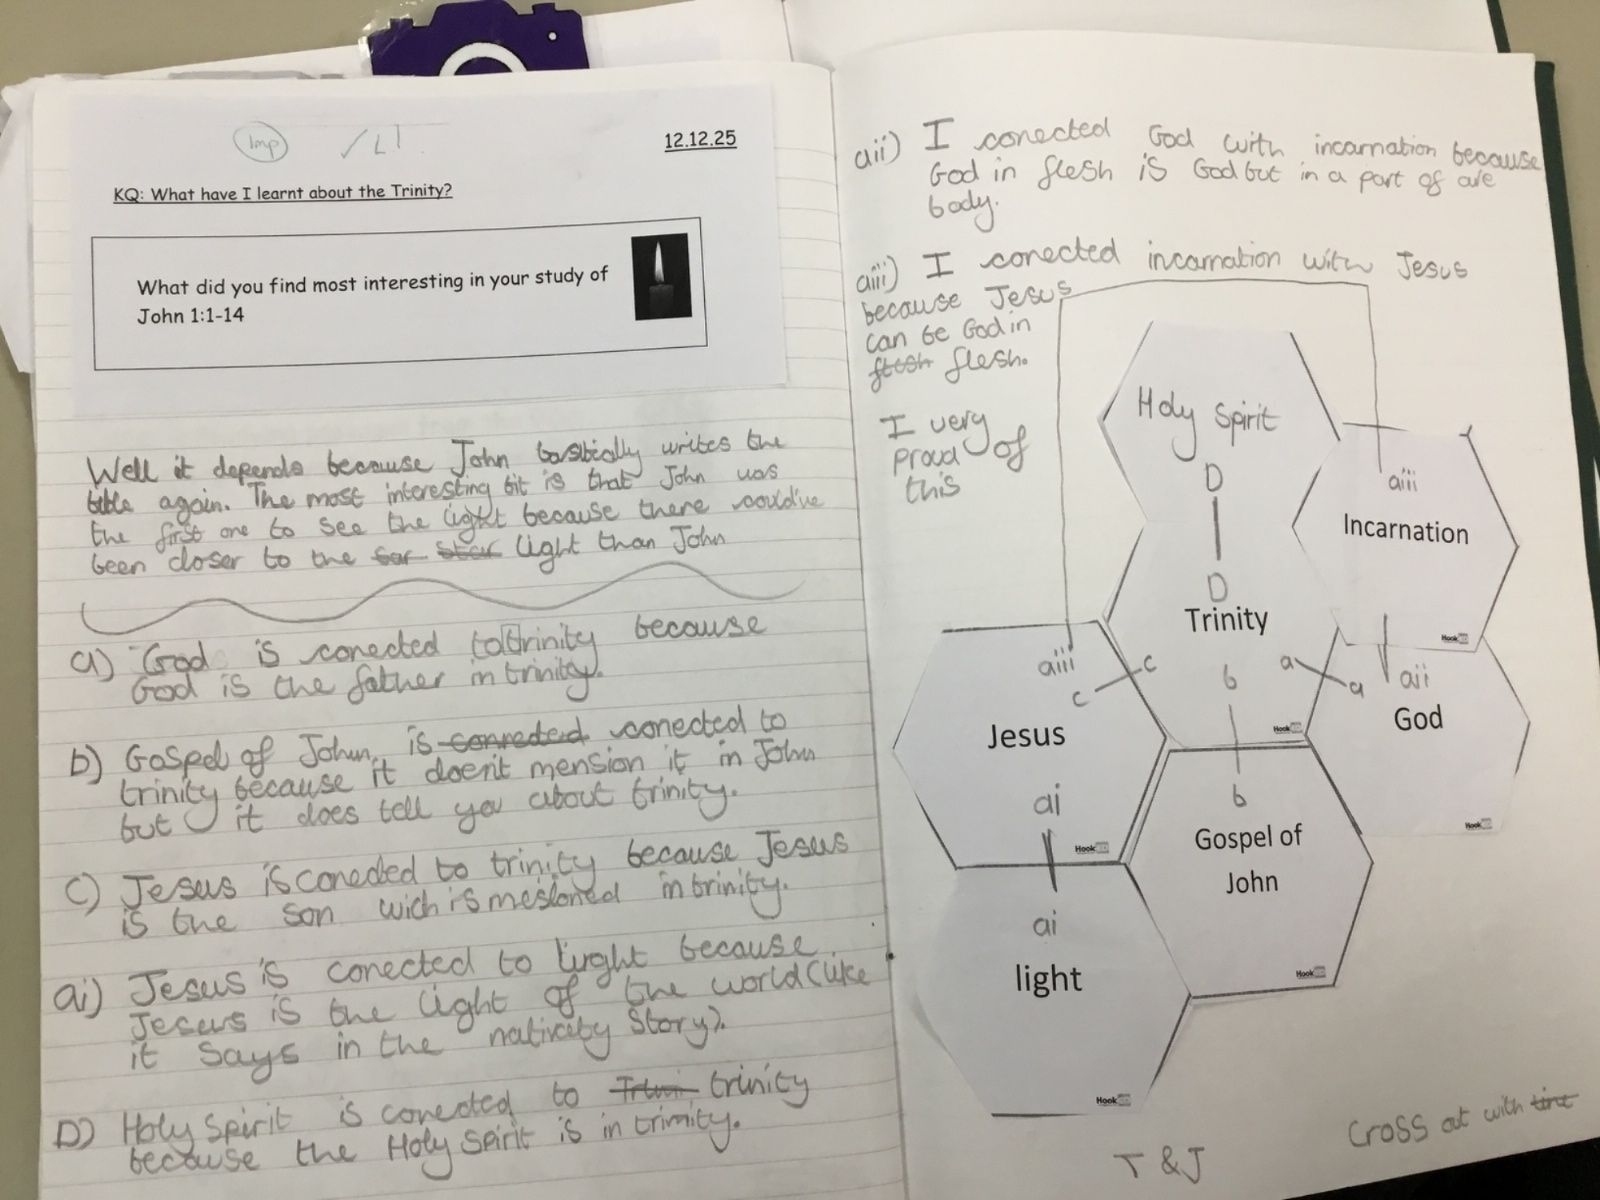 Imp
✓ LI
12.12.25
KQ: What have I learnt about the Trinity?
What did you find most interesting in your study of
John 1:1-14
Well it depends because John basibically writes the
bible again. The most interesting bit is that John was
the first one to see the light because there could've
been closer to the light than John
a) God is conected to trinity because
God is the father in trinity.
b) Gospel of John, is conrected conected to
trinity because it doen't mension it in John
but it does tell you about trinity.
c) Jesus is conected to trinity because Jesus
is the son wich is mesioned in trinity.
ai) Jesus is conected to light because
Jesus is the light of the world (like
it says in the nativety story).
D) Holy Spirit is conected to trinity
because the Holy Spirit is in trinity.
aii) I conected God with incarnation because
God in flesh is God but in a part of are
body.
aiii) I conected incarnation with Jesus
because Jesus
can be God in
flesh flesh.
I very
proud of
this
Holy Spirit
D
D
Trinity
b
a
a
c
c
aiii
Incarnation
Hook
aii
God
Hook
Hook
aiii
Jesus
ai
Hook
b
Gospel of
John
Hook
ai
light
Hook
T & J
Cross out with line